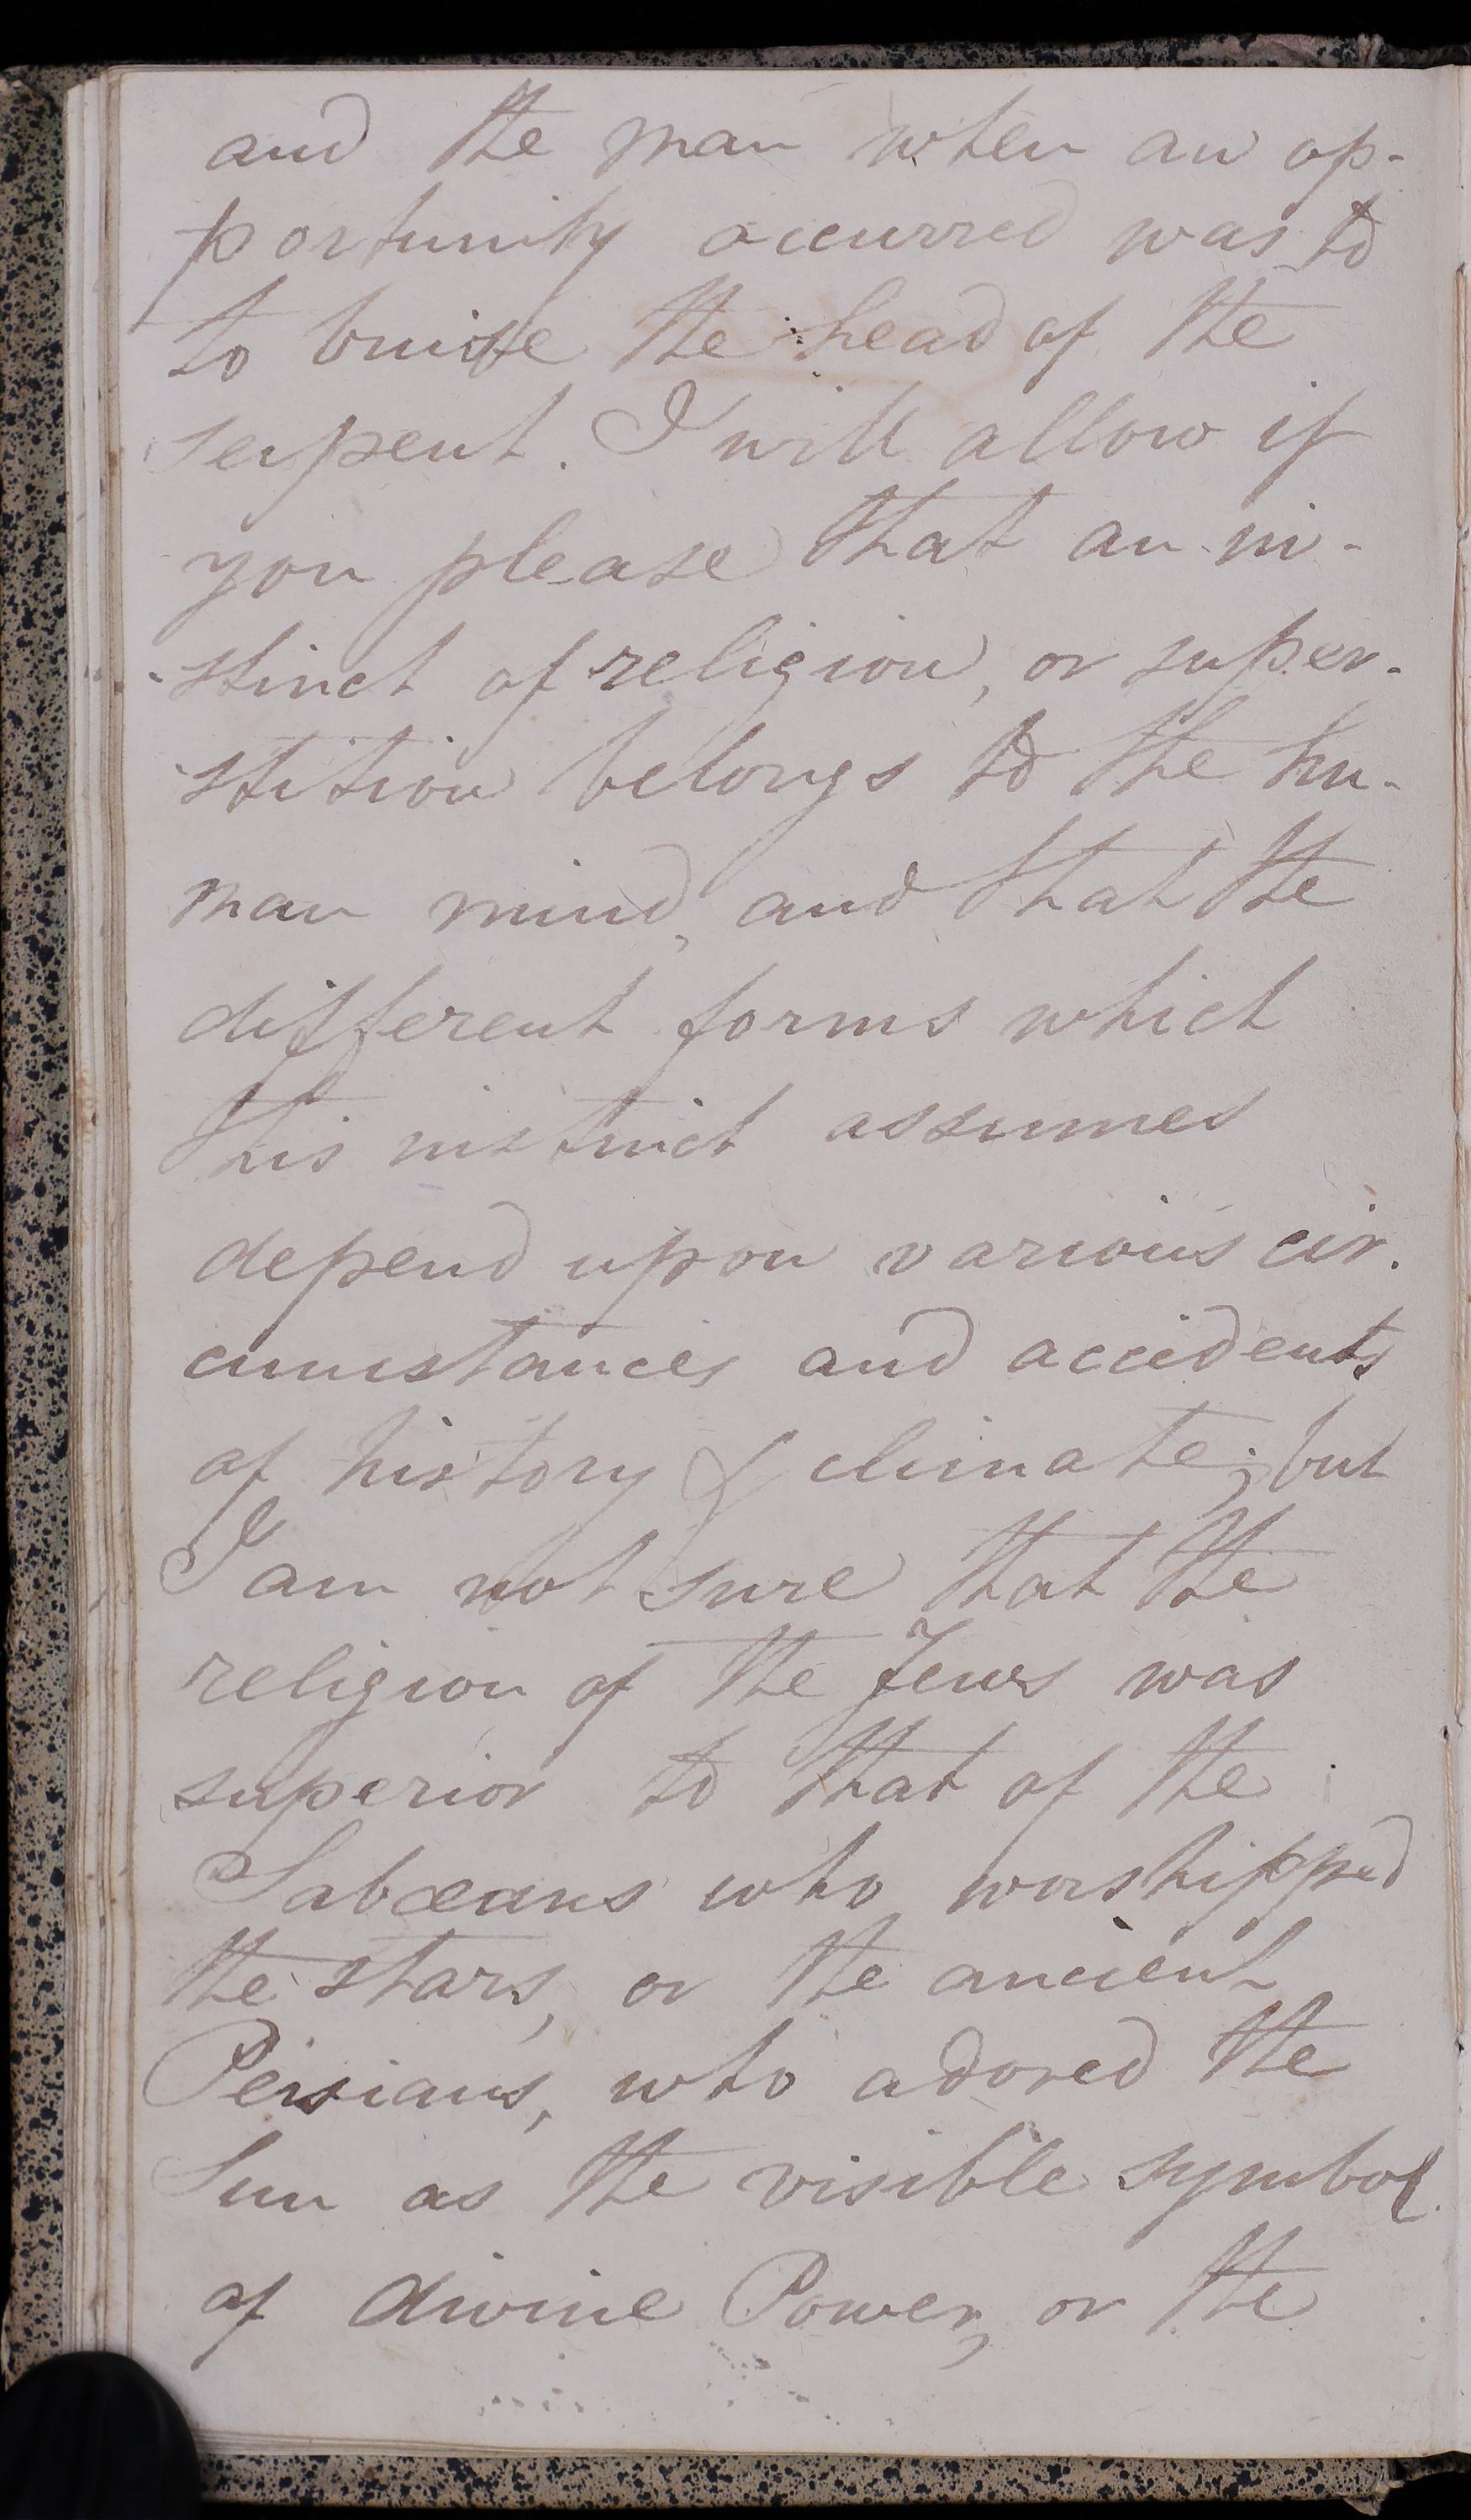 and the man when an op-
portunity occurred was to
to bruise the head of the
serpent. I will allow if
you please that an in-
stinct of religion, or super-
stition belongs to the hu-
man mind, and that the
different forms which
this instinct assumes
depend upon various cir-
cumstances and accidents
of history & climate; but
I am not sure that the
religion of the Jews was
superior to that of the
Sabæans who worshipped
the stars, or the ancient
Persians, who adored the
Sun as the visible symbol
of divine Power, or the